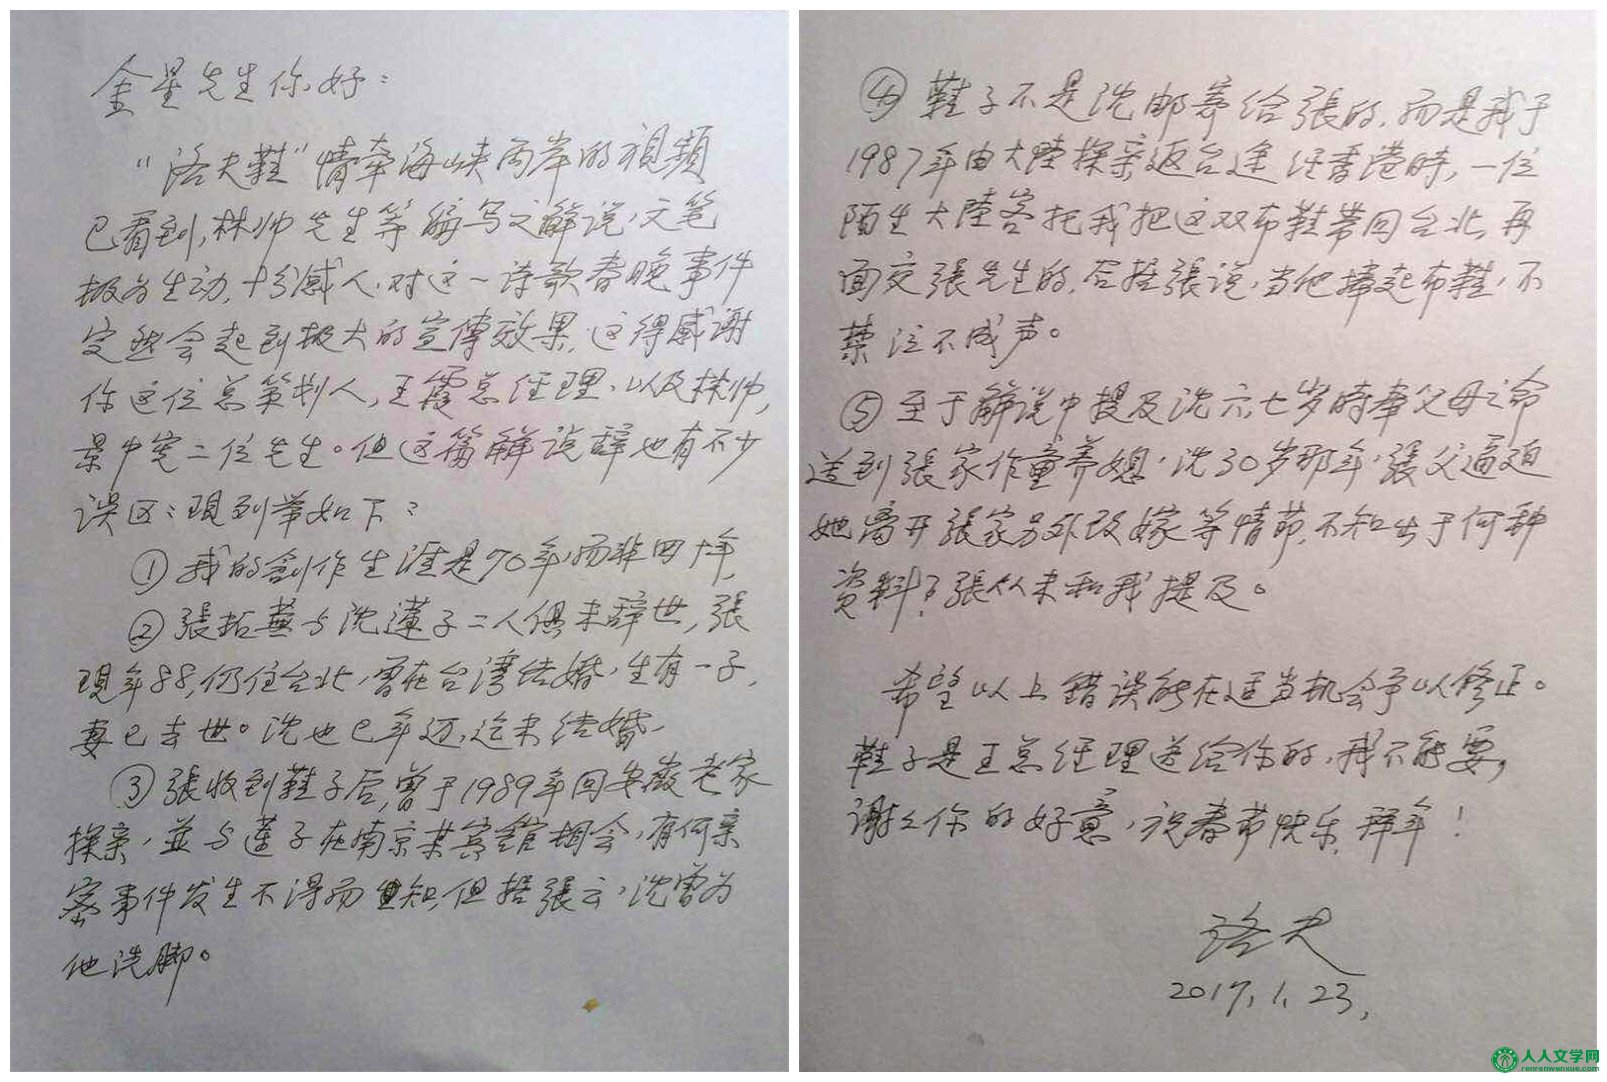 金星先生你好：
“洛夫鞋”情牽海峡两岸的視頻
已看到，林帅先生等编写之解说，文笔
极为生动，十分感人，对这一诗歌春晚事件
定然会起到极大的宣傳效果，这得感谢
你这位总策划人，王霞总经理，以及林帅，
景中宪二位先生。但这篇解说辞也有不少
误区；現列举如下：
①我的創作生涯是70年，而非四十年，
②張拓蕪与沈蓮子二人俱未辞世，張
現年88，仍住台北，曾在台湾结婚，生有一子，
妻已去世。沈也已年迈，迄未结婚，
③張收到鞋子后，曾于1989年回安徽老家
探亲，並与莲子在南京某宾館相会，有何亲
密事件发生不得而知，但据張云，沈曾为
他洗脚。
④鞋子不是沈邮寄给張的，而是我于
1987年由大陸探亲返台途经香港時，一位
陌生大陸客托我把这双布鞋带回台北，再
面交張先生的，后据張说，当他捧起布鞋，不
禁泣不成声。
⑤至于解说中提及沈六、七岁時奉父母之命
送到張家作童养媳，沈30岁那年，張父逼迫
她离开張家另外改嫁等情节，不知出于何种
资料？張从未和我提及。
希望以上错误能在适当机会予以修正。
鞋子是王总经理送给你的，我不能要，
谢谢你的好意，祝春节快乐，拜年！
洛夫
2017.1.23,
人人文学网
renrenwenxue.com